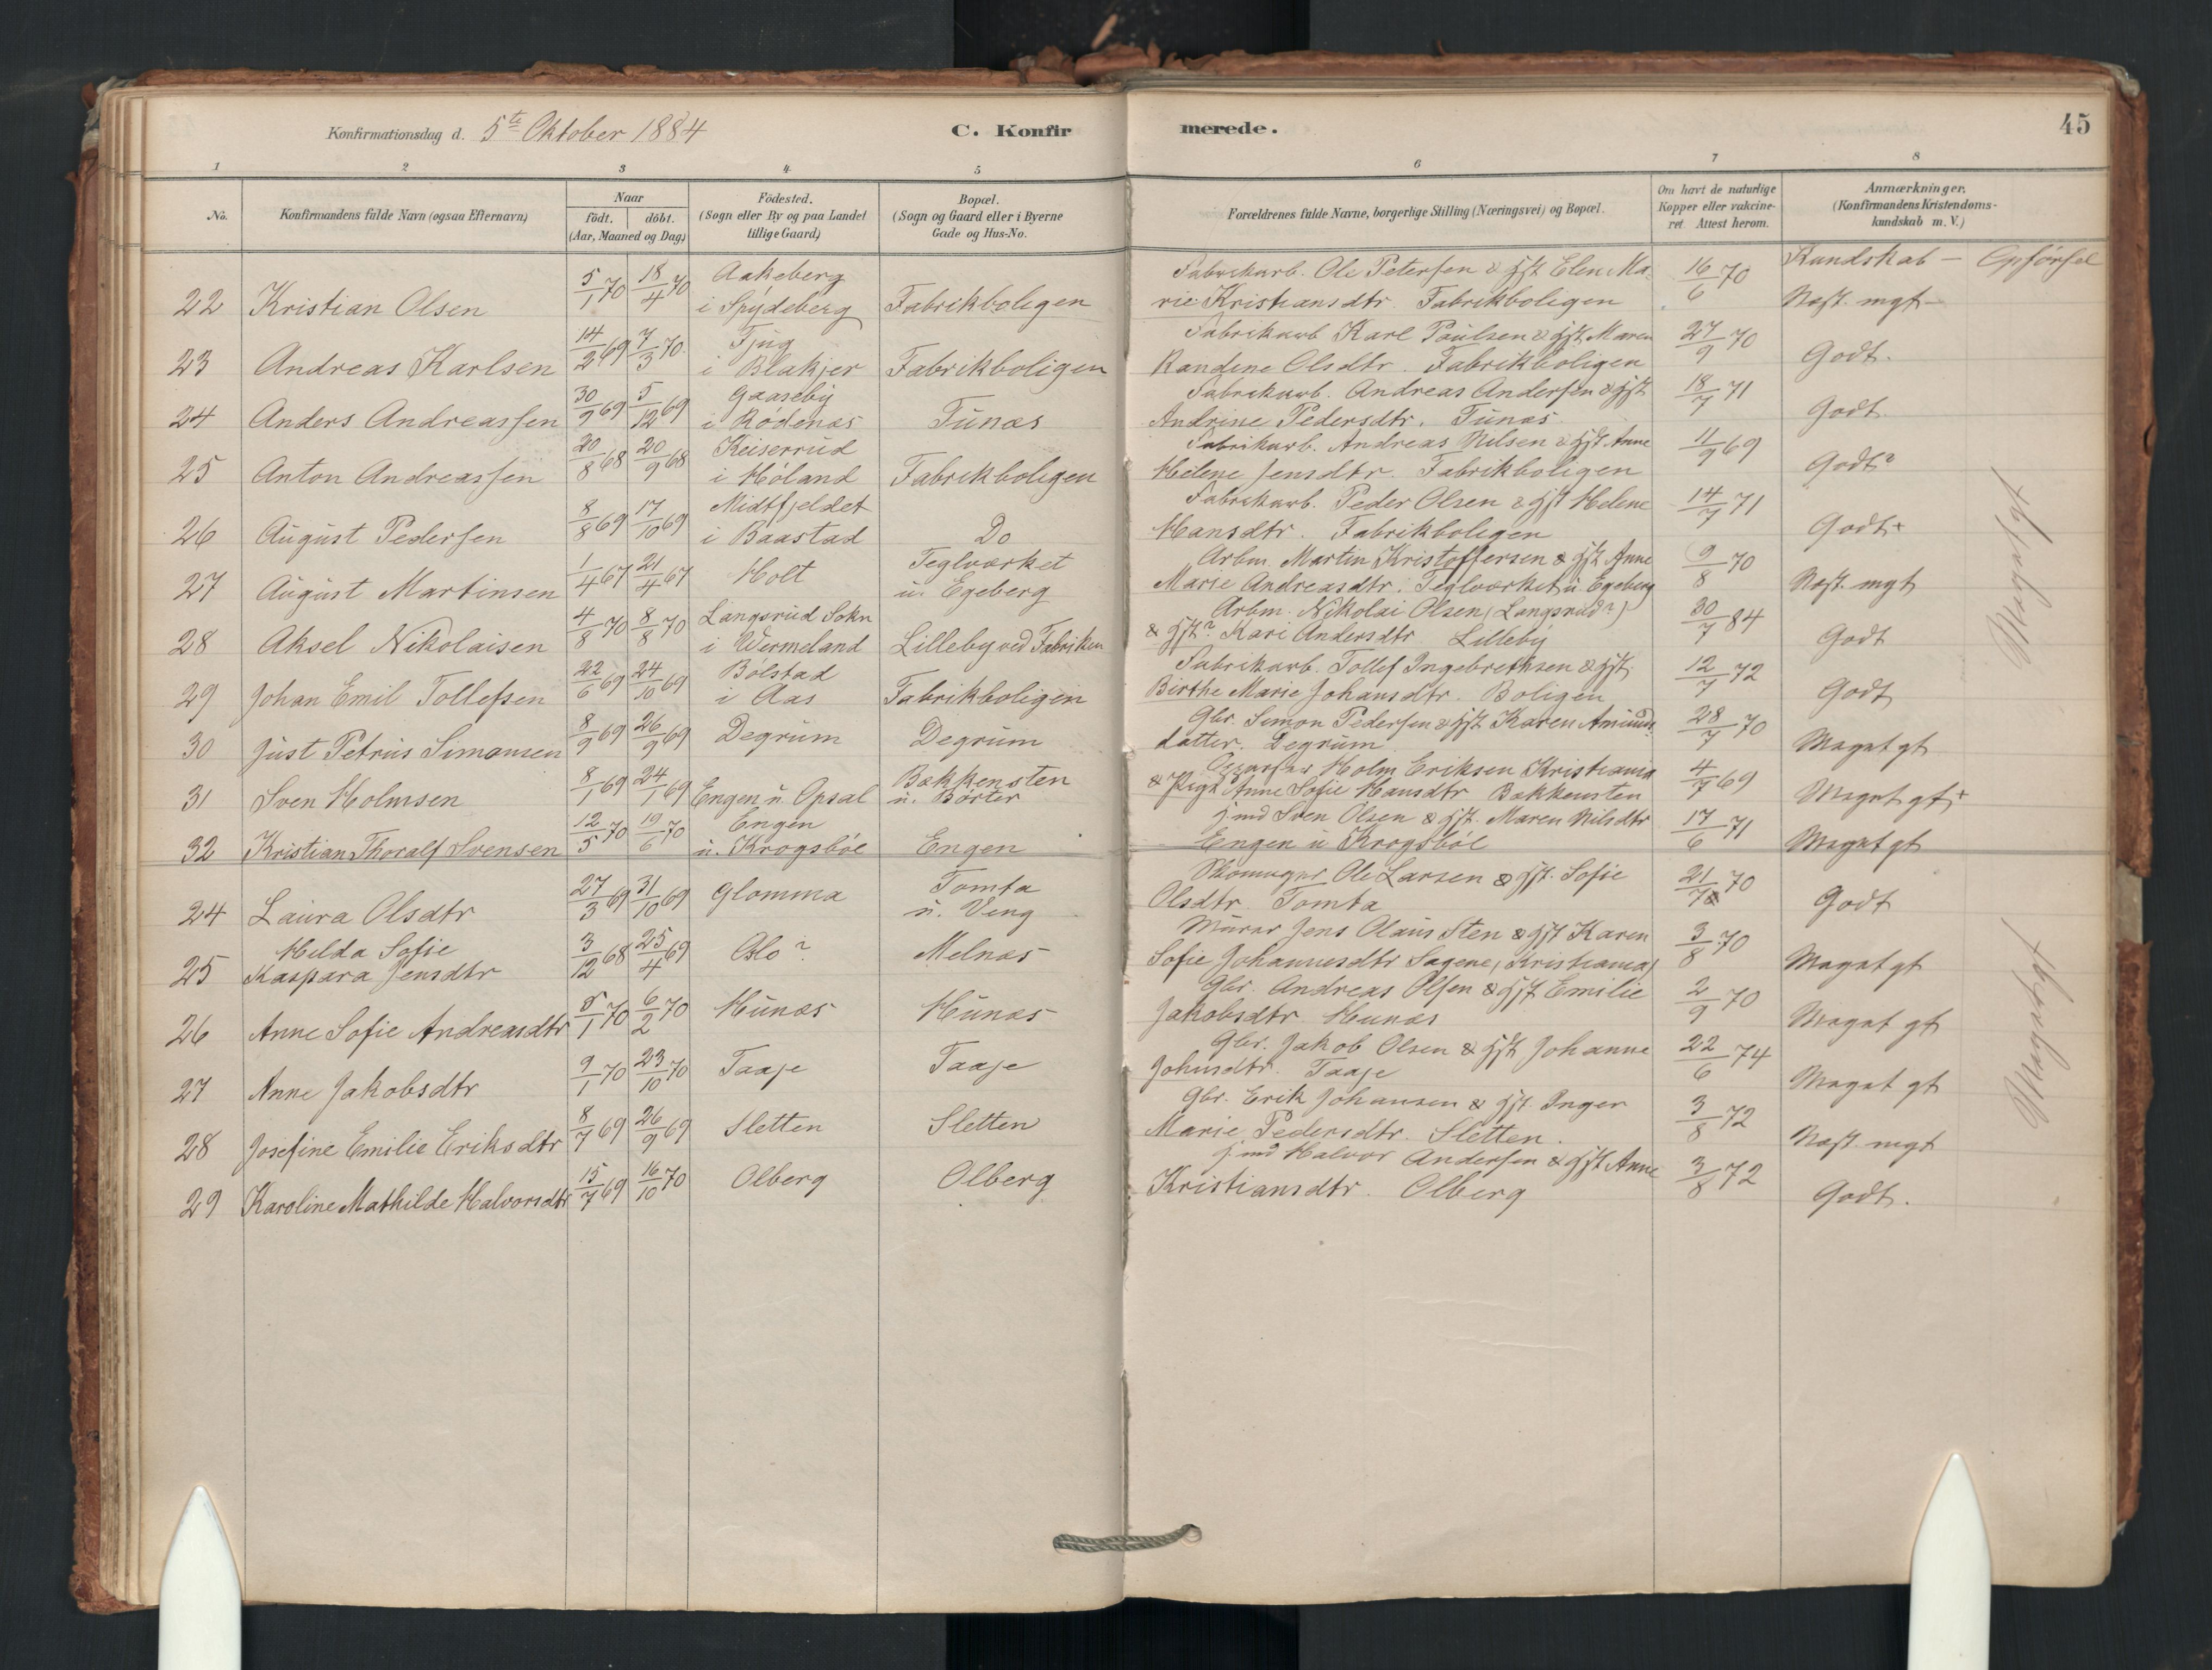 Konfirmationsdag d. 5te Oktober 1884
C. Konfirmerede.
45
1 2 3 4 5 6 7 8
No.
Konfirmandens fulde Navn (ogsaa Efternavn)
Naar
födt. döbt.
(Aar, Maaned og Dag)
Födested.
(Sogn eller By og paa Landet
tillige Gaard)
Bopæl.
(Sogn og Gaard eller i Byerne
Gade og Hus-No.
Forældrenes fulde Navne, borgerlige Stilling (Næringsvei) og Bopæl.
Om havt de naturlige
Kopper eller vakcine-
ret. Attest herom.
Anmærkninger.
(Konfirmandens Kristendoms-
kundskab m. V.)
Kundskab — Opförsel
22 Kristian Olsen 5/1 70 18/4 70 Aakeberg i Spydeberg Fabrikboligen Fabrikarb. Ole Petersen & Hst Elen Ma-
rie Kristiansdtr. Fabrikboligen 16/6 70 Næst. mgt
23 Andreas Karlsen 14/2 69 7/3 70 Tjug i Blakjer Fabrikboligen Fabrikarb Karl Paulsen & Hst. Maren
Randine Olsdtr. Fabrikboligen 27/9 70 Godt.
24 Anders Andreassen 30/9 69 5/12 69 Gaaseby i Rödenæs Tunæs Fabrikarb. Andreas Andersen & Hst
Andrine Pedersdtr. Tunæs 18/7 71 Godt
25 Anton Andreassen 20/8 68 20/9 68 Keiserrud i Höland Fabrikboligen Fabrikarb. Andreas Nilsen & Hst Anne
Helene Jensdtr. Fabrikboligen 11/9 69 Godt?
26 August Pedersen 8/8 69 17/10 69 Midtfjeldet i Baastad Do Fabrikarb. Peder Olsen & Hst Helene
Hansdtr. Fabrikboligen 14/7 71 Godt+
27 August Martinsen 1/4 67 21/4 67 Holt Teglværket u. Egeberg Arbm. Martin Kristoffersen & Hst Anne
Marie Andreasdtr. Teglværket u Egeberg 9/8 70 Næst. mgt
28 Aksel Nikolaisen 4/8 70 8/8 70 Langsrud Sokn i Wermeland Lilleby ved Fabriken Arbm. Nikolai Olsen (Langsrud?)
& Hst? Kari Andersdtr. Lilleby 30/7 84 Godt
29 Johan Emil Tollefsen 22/6 69 24/10 69 Bölstad i Aas Fabrikboligen Fabrikarb. Tollef Ingebrethsen & Hst.
Birthe Marie Johansdtr. Boligen 12/7 72 Godt
30 Just Petrus Simonsen 8/9 69 26/9 69 Degrum Degrum Gbr. Simon Pedersen & Hst Karen Amunds
datter. Degrum 28/7 70 Meget gt
31 Sven Holmsen 8/1 69 24/1 69 Engen u. Opsal Bakkensten u. Börter Holm Eriksen Kristiania
& Pige Anne Sofie Hansdtr Bakkensten 4/7 69 Meget gt+
32 Kristian Thoralf Svensen 12/5 70 19/6 70 Engen u. Krogsböl Engen Jmd Sven Olsen & Hst. Maren Nilsdtr
Engen u Krogsböl 17/6 71 Meget gt
Meget gt
24 Laura Olsdtr 27/3 69 31/10 69 Glomma Tomta u. Veng Skomager Ole Larsen & Hst. Sofie
Olsdtr. Tomta 21/7 70 Godt
25 Hilda Sofie Kaspara Jensdtr 3/12 68 25/4 69 Oslo? Melnæs Murer Jens Olaus Sten & Hst Karen
Sofie Johannesdtr Sagene (Kristiania) 3/8 70 Meget gt
26 Anne Sofie Andreasdtr 5/1 70 6/2 70 Hunæs Hunæs Gbr. Andreas Olsen & Hst Emilie
Jakobsdtr Hunæs 2/9 70 Meget gt
27 Anne Jakobsdtr 9/1 70 23/10 70 Taaje Taaje Gbr. Jakob Olsen & Hst Johanne
Johnsdtr. Taaje 22/6 74 Meget gt
28 Josefine Emilie Eriksdtr 8/7 69 26/9 69 Sletten Sletten Gbr. Erik Johansen & Hst. Inger
Marie Pedersdtr. Sletten. 3/8 72 Næst. mgt
29 Karoline Mathilde Halvorsdtr 15/7 69 16/10 70 Olberg Olberg Jmd Halvor Andersen & Hst Anne
Kristiansdtr. Olberg 3/8 72 Godt.
Meget gt